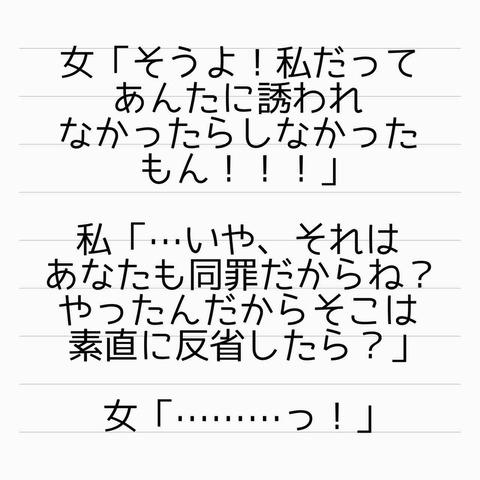 女「そうよ！私だって
あんたに誘われ
なかったらしなかった
もん！！！」
私「…いや、それは
あなたも同罪だからね？
やったんだからそこは
素直に反省したら？」
女「………っ！」